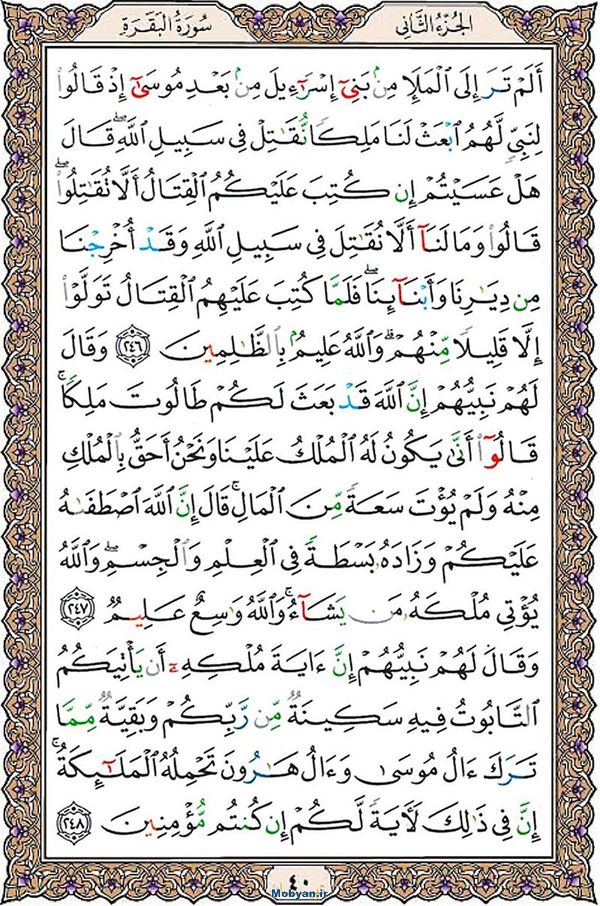 الجزء الثاني
سورة البقرة
أَلَمْ تَرَ إِلَى ٱلْمَلَإِ مِنۢ بَنِىٓ إِسْرَٰٓءِيلَ مِنۢ بَعْدِ مُوسَىٰٓ إِذْ قَالُوا۟
لِنَبِىٍّ لَّهُمُ ٱبْعَثْ لَنَا مَلِكًا نُّقَٰتِلْ فِى سَبِيلِ ٱللَّهِ ۖ قَالَ
هَلْ عَسَيْتُمْ إِن كُتِبَ عَلَيْكُمُ ٱلْقِتَالُ أَلَّا تُقَٰتِلُوا۟ ۖ
قَالُوا۟ وَمَا لَنَآ أَلَّا نُقَٰتِلَ فِى سَبِيلِ ٱللَّهِ وَقَدْ أُخْرِجْنَا
مِن دِيَٰرِنَا وَأَبْنَآئِنَا ۖ فَلَمَّا كُتِبَ عَلَيْهِمُ ٱلْقِتَالُ تَوَلَّوْا۟
إِلَّا قَلِيلًا مِّنْهُمْ ۗ وَٱللَّهُ عَلِيمٌۢ بِٱلظَّٰلِمِينَ ٢٤٦ وَقَالَ
لَهُمْ نَبِيُّهُمْ إِنَّ ٱللَّهَ قَدْ بَعَثَ لَكُمْ طَالُوتَ مَلِكًا ۚ
قَالُوٓا۟ أَنَّىٰ يَكُونُ لَهُ ٱلْمُلْكُ عَلَيْنَا وَنَحْنُ أَحَقُّ بِٱلْمُلْكِ
مِنْهُ وَلَمْ يُؤْتَ سَعَةً مِّنَ ٱلْمَالِ ۚ قَالَ إِنَّ ٱللَّهَ ٱصْطَفَىٰهُ
عَلَيْكُمْ وَزَادَهُۥ بَسْطَةً فِى ٱلْعِلْمِ وَٱلْجِسْمِ ۖ وَٱللَّهُ
يُؤْتِى مُلْكَهُۥ مَن يَشَآءُ ۚ وَٱللَّهُ وَٰسِعٌ عَلِيمٌ ٢٤٧
وَقَالَ لَهُمْ نَبِيُّهُمْ إِنَّ ءَايَةَ مُلْكِهِۦٓ أَن يَأْتِيَكُمُ
ٱلتَّابُوتُ فِيهِ سَكِينَةٌ مِّن رَّبِّكُمْ وَبَقِيَّةٌ مِّمَّا
تَرَكَ ءَالُ مُوسَىٰ وَءَالُ هَٰرُونَ تَحْمِلُهُ ٱلْمَلَٰٓئِكَةُ ۚ
إِنَّ فِى ذَٰلِكَ لَءَايَةً لَّكُمْ إِن كُنتُم مُّؤْمِنِينَ ٢٤٨
٤٠
Mobyan.ir